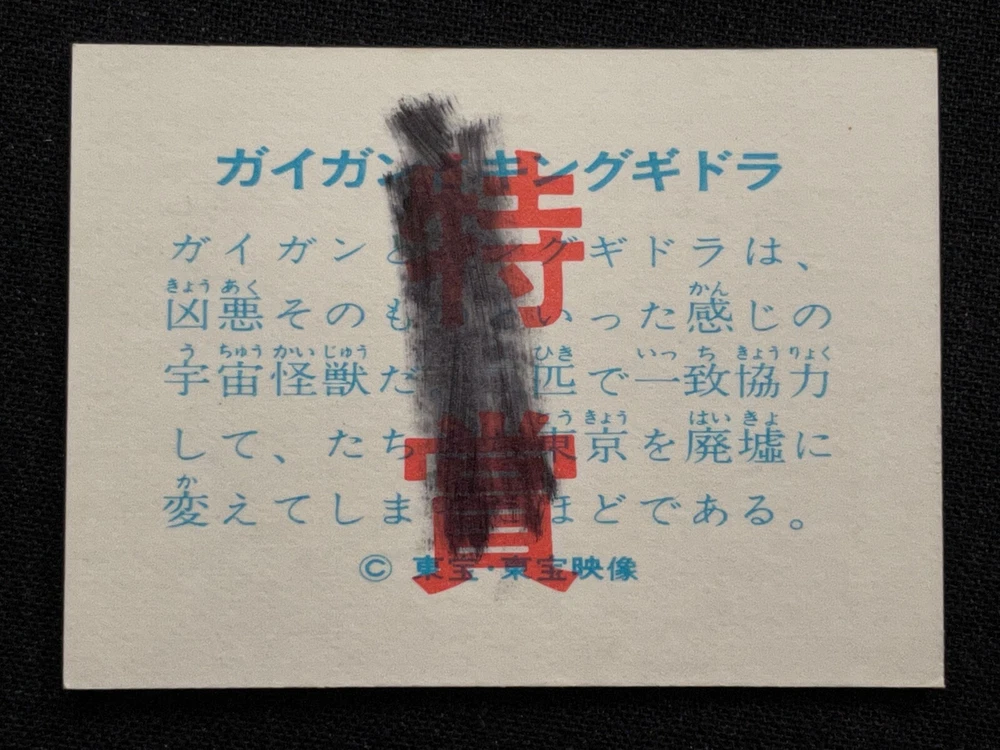 ガイガン キングギドラ
ガイガンと ングギドラは、
凶悪そのも いった感じの
宇宙怪獣だ 匹で一致協力
して、たち 東京を廃墟に
変えてしま ほどである。
© 東宝・東宝映像
特賞